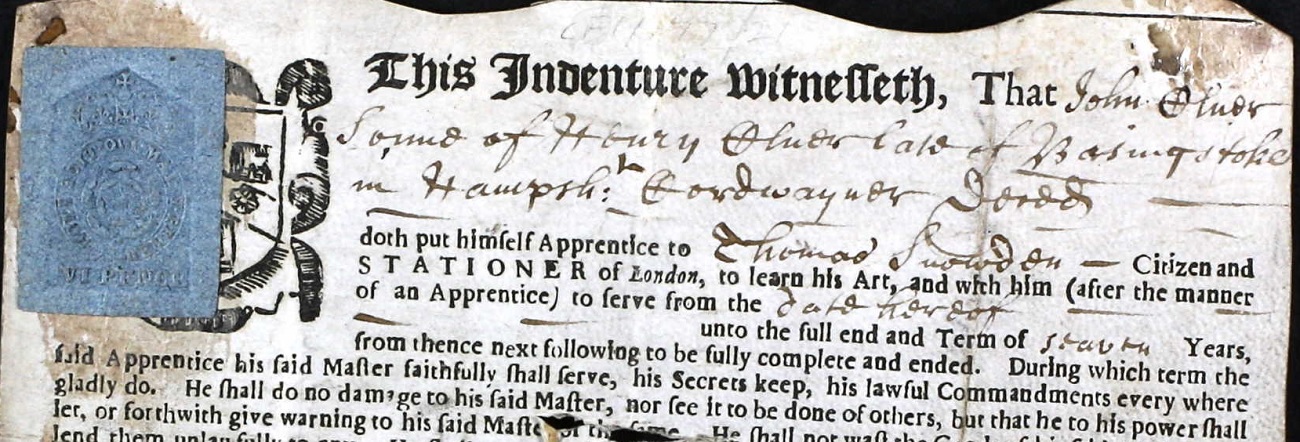 This Indenture Witnesseth, That John Olner
Sonne of Henry Olner late of Basingstoke
in Hampsh:r Cordwayner Deced
doth put himself Apprentice to Thomas Snowden — Citizen and
STATIONER of London, to learn his Art, and with him (after the manner
of an Apprentice) to serve from the date hereof
unto the full end and Term of seaven Years,
from thence next following to be fully complete and ended. During which term the
said Apprentice his said Master faithfully shall serve, his Secrets keep, his lawful Commandments every where
gladly do. He shall do no damage to his said Master, nor see it to be done of others, but that he to his power shall
let, or forthwith give warning to his said Maste of the same He shall not wast the
VI PENCE